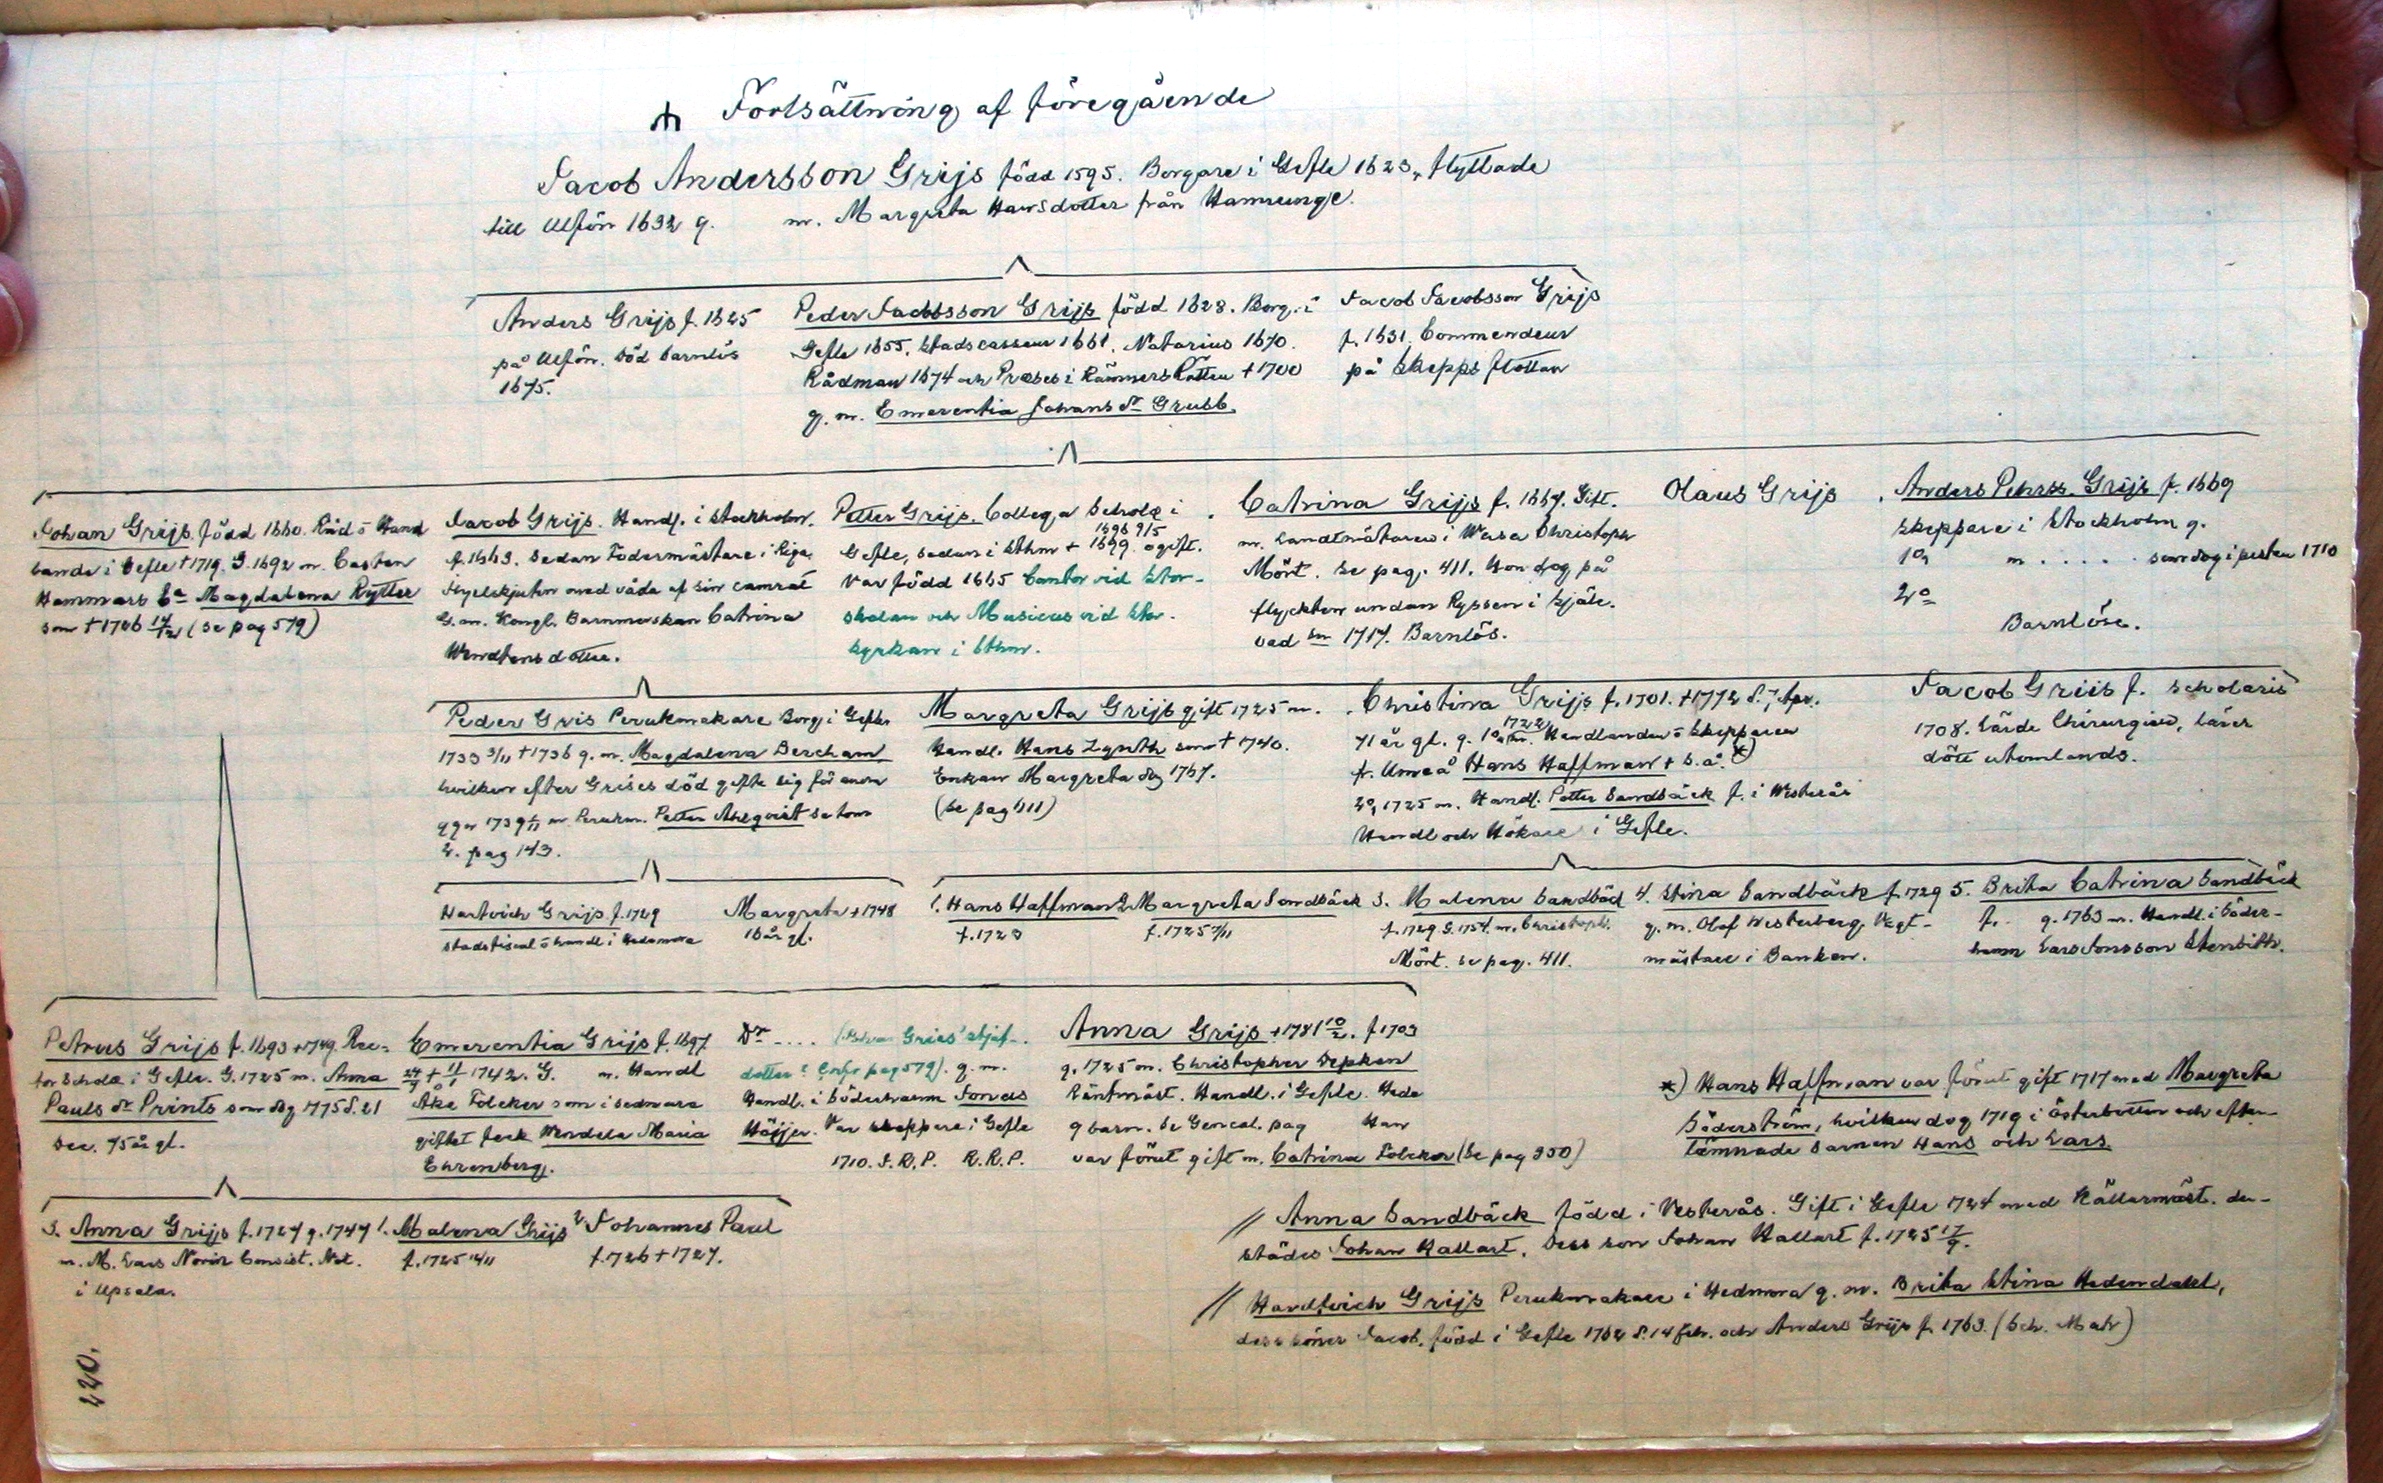 Fortsättning af föregående
Jacob Andersson Grijs född 1595. Borgare i Gefle 1623, flyttade
till Ulfön 1632 g. m. Margreta Hansdotter från Hamrunge.
Anders Grijs f. 1625
på Ulfön. Död barnlös
1675.
Peder Jacobsson Grijs född 1628. Borg. i
Gefle 1655. Stadscasseur 1661. Notarius 1670.
Rådman 1674 och Præses i Kämners Rätten † 1700
g. m. Emerentia Johans Dr Grubb.
Jacob Jacobsson Grijs
f. 1631. Commendeur
på Skepps flottan
Johan Grijs. född 1660. Råd o Hand
lande i Gefle † 1719. G. 1692 m. Casten
Hammars Ea Magdalena Rytter
som † 1726 14/12 (se pag 579)
Jacob Grijs. Handl. i Stockholm.
f. 1663. Sedan Fodermästare i Riga,
ihjelskjuten med våda af sin camrat
G. m. Kongl. Barnmorskan Catrina
Wendtens dotter.
Petter Grijs. Collega Scholæ i
1696 9/5
Gefle, sedan i Sthm † 1699. ogift.
Var född 1665 Cantor vid Stor-
skolan och Musicus vid Stor-
kyrkan i Sthm.
Catrina Grijs f. 1667. Gift.
m. Landtmätaren i Wasa Christoph
Mört. Se pag. 411. Hon dog på
flykten undan Ryssen i Själe-
vad sn 1717. Barnlös.
Olaus Grijs
Anders Pehrss. Grijs f. 1669
Skeppare i Stockholm g.
1o m . . . . . som dog i pesten 1710
2o
Barnlöse.
Peder Gris Perukmakare Borg. i Gefle
1733 3/11 † 1736 g. m. Magdalena Bercham
hvilken efter Grises död gifte sig för andra
ggn 1739 m Perukm. Petter Ahlqvist Se tom
2. pag 143.
Margreta Grijs gift 1725 m.
Handl. Hans Zynth som † 1740.
Enkan Margreta dog 1767.
(Se pag 611)
Christina Grijs f. 1701. † 1772 d. 7 Apr.
71 år gl. g. 1o 1722 m. Handlanden o Skepparen
fr. Umeå Hans Haffman † s. å. *)
2o, 1725 m. Handl. Petter Sandbäck f. i Westerås
Handl och Hökare i Gefle.
Jacob Griis f. scholaris
1708. Lärde Chirurgien, lärer
dött utomlands.
Hartvich Grijs f. 1729
Stadsfiscal o handl i Hedemora
Margreta † 1748
16 år gl.
1. Hans Haffman
f. 1723
2 Margreta Sandbäck
f. 1725 7/11
3. Malena Sandbäck
f. 1729 G. 1754. m. Christoph.
Mört. se pag. 411.
4. Stina Sandbäck f. 1729
g. m. Olof Westerberg, Vagt-
mästare i Banken.
5. Brita Catrina Sandbäck
f. . g. 1763 m. Handl. i Söder-
hamn Lars Jonsson Stenbith.
Petrus Grijs f. 1693 † 1749. Rec-
tor Scholæ i Gefle. G. 1725 m. Anna
Pauls Dr Prints som dog 1775 d. 21
Dec. 75 år gl.
Emerentia Grijs f. 1697
24/9 † 11/1 1742. G. m. Handl
Åke Folcker som i sednare
giftet fick Wendela Maria
Ehrenberg.
Dr . . . . (Johan Gries' styf-
dotter? Cnfr pag 579). g. m.
Handl. i Söderhamn Jonas
Höijer. Var skeppare i Gefle
1710. S. R. P. R. R. P.
Anna Grijs † 1781 10/2. f. 1703
g. 1725 m. Christopher Depken
Räntmäst. Handl. i Gefle. Hade
9 barn. Se Geneal. pag Han
var förut gift m. Catrina Folcker (Se pag 350)
*) Hans Haffman var förut gift 1717 med Margreta
Söderström, hvilken dog 1719 i Österbotten och efter-
lämnade barnen Hans och Lars.
3. Anna Grijs f. 1727 g. 1747
m. M. Lars Norin Consist. Not.
i Upsala.
1. Malena Grijs
f. 1725 14/11
2 Johannes Paul
f. 1726 † 1727.
// Anna Sandbäck född i Vesterås. Gift i Gefle 1724 med Källarmäst. der-
städes Johan Kallart. Dess son Johan Kallart f. 1725 17/9.
// Hardtvich Grijs Perukmakare i Hedmora g. m. Brita Stina Hedendahl,
dess söner Jacob, född i Gefle 1762 d. 14 Feb. och Anders Grijs f. 1763. (Sch. Matr)
220.